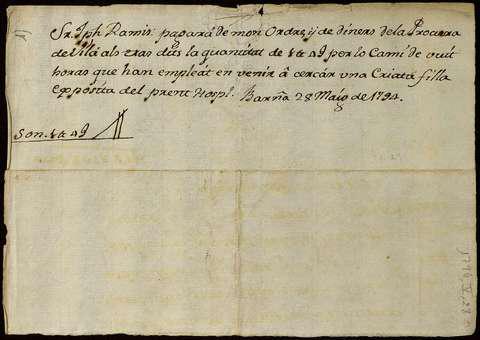 Sr. Jph Ramis pagará de mon Ordre, y de diners de la Procura
de Vilá als eras dits la quantitat de 1 ll 4 s 9 per lo Cami de vuit
horas que han empleát en venir á cercár una Criata filla
Expósita del prent Hospl. Barña 28 Maig de 1794.
Son
1794.V.28